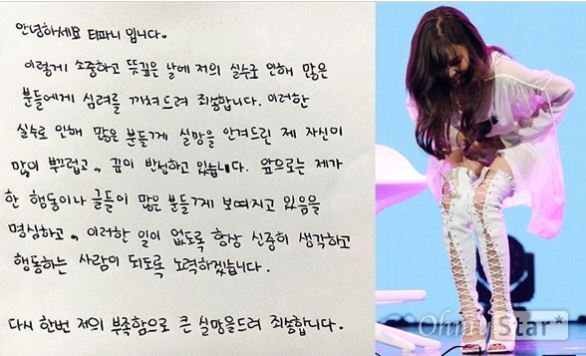 안녕하세요 티파니 입니다.
이렇게 소중하고 뜻깊은 날에 저의 실수로 인해 많은
분들에게 심려를 끼쳐드려 죄송합니다. 이러한
실수로 인해 많은 분들께 실망을 안겨드린 제 자신이
많이 부끄럽고, 깊이 반성하고 있습니다. 앞으로는 제가
한 행동이나 글들이 많은 분들께 보여지고 있음을
명심하고, 이러한 일이 없도록 항상 신중히 생각하고
행동하는 사람이 되도록 노력하겠습니다.
다시 한번 저의 부족함으로 큰 실망을드려 죄송합니다.
OhmyStar